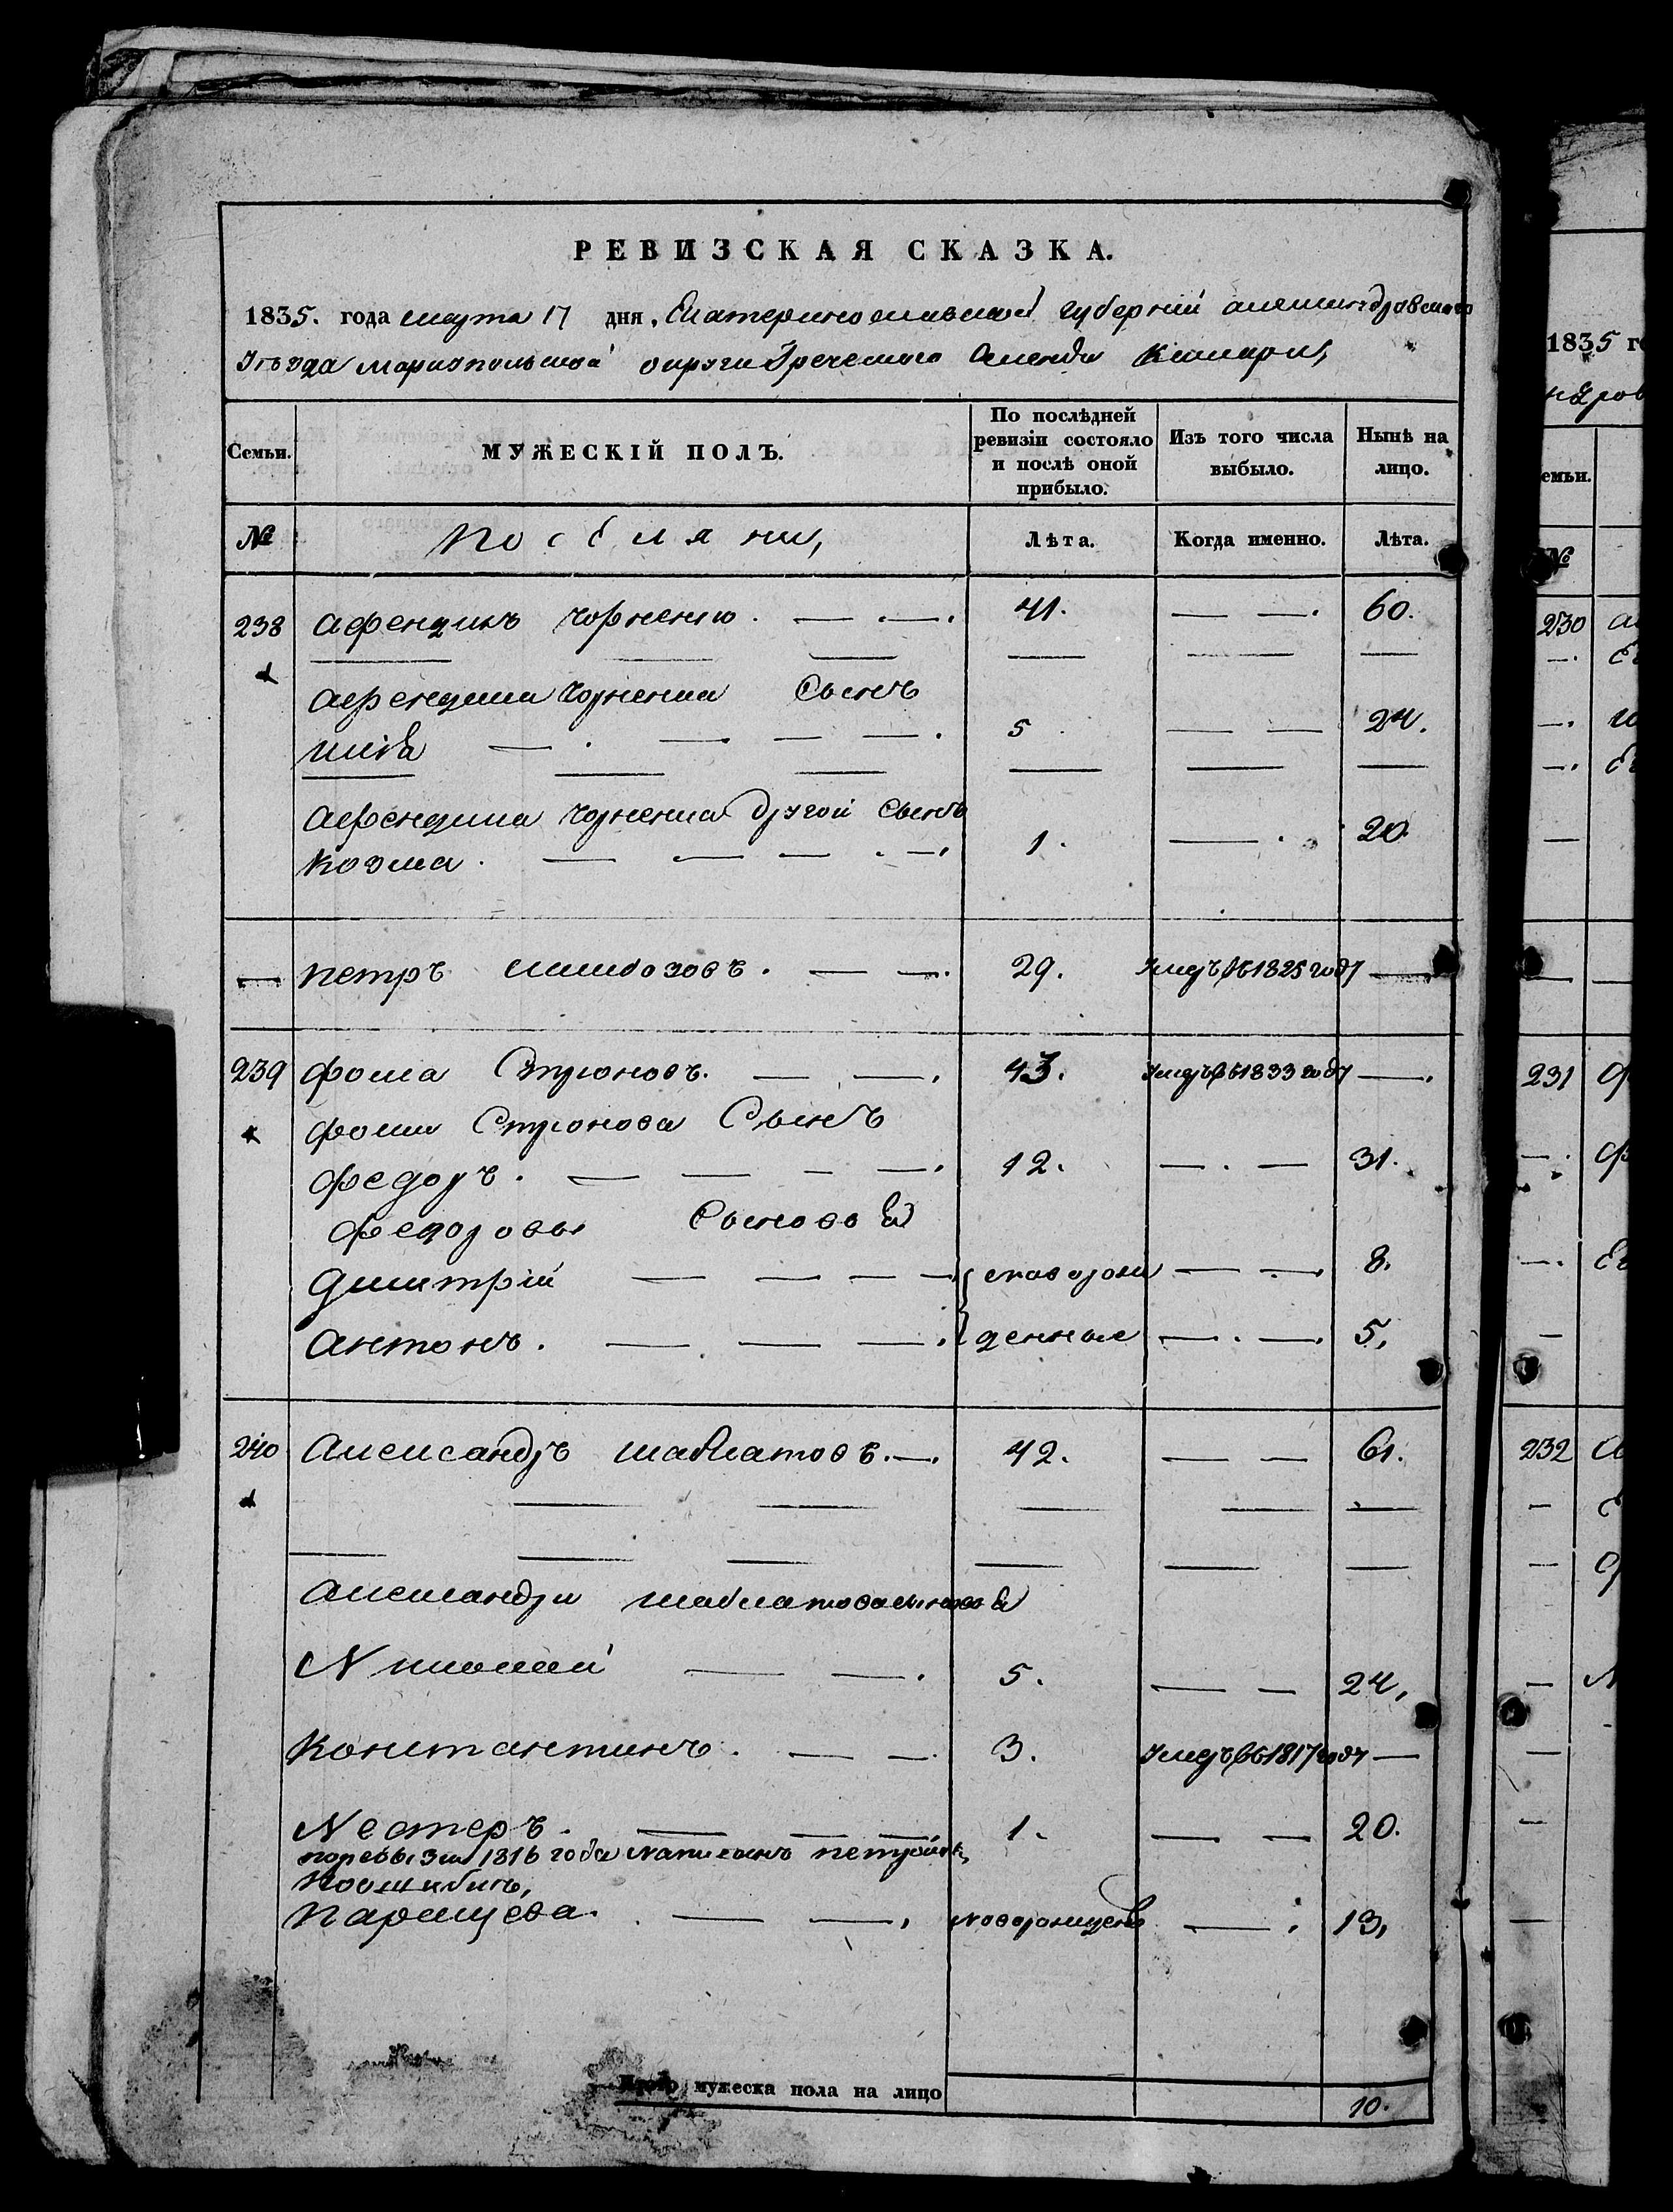 РЕВИЗСКАЯ СКАЗКА.
1835. года марта 17 дня, Екатеринославской губерніи александровскаго
Уѣзда мариопольской округи Греческаго Селенiя Камары,
Семьи. МУЖЕСКІЙ ПОЛЪ. По послѣдней ревизіи состояло и послѣ оной прибыло. Изъ того числа выбыло. Нынѣ на лицо.
№ Поселяни, Лѣта. Когда именно. Лѣта.
238 афендикъ Чорненко. 41. 60.
афендика Чорненка Сынъ
5 24.
афендика Чорненка другой Сынъ
Козма. 1. 20
петръ 29. Умеръ въ 1825 году
239 фома Стріоновъ. 43. Умеръ въ 1833 году
фомы Стріонова Сынъ
федоръ. 12. 31.
федоровы Сыновья
Димитрій новорож 8.
антонъ. денные 5.
240 Александръ шаблатовъ. 42. 61.
Александра шаблатова сыновья
Николай 5. 24,
Константинъ. 3. Умеръ въ 1817 году
Нестеръ. 1. 20.
поревизiи 1816 года написанъ петромъ,
поошибкъ,
Паращева. новорожденъ 13,
Итого мужеска пола на лицо 10.
1835 го
емьи.
№
230
231
232